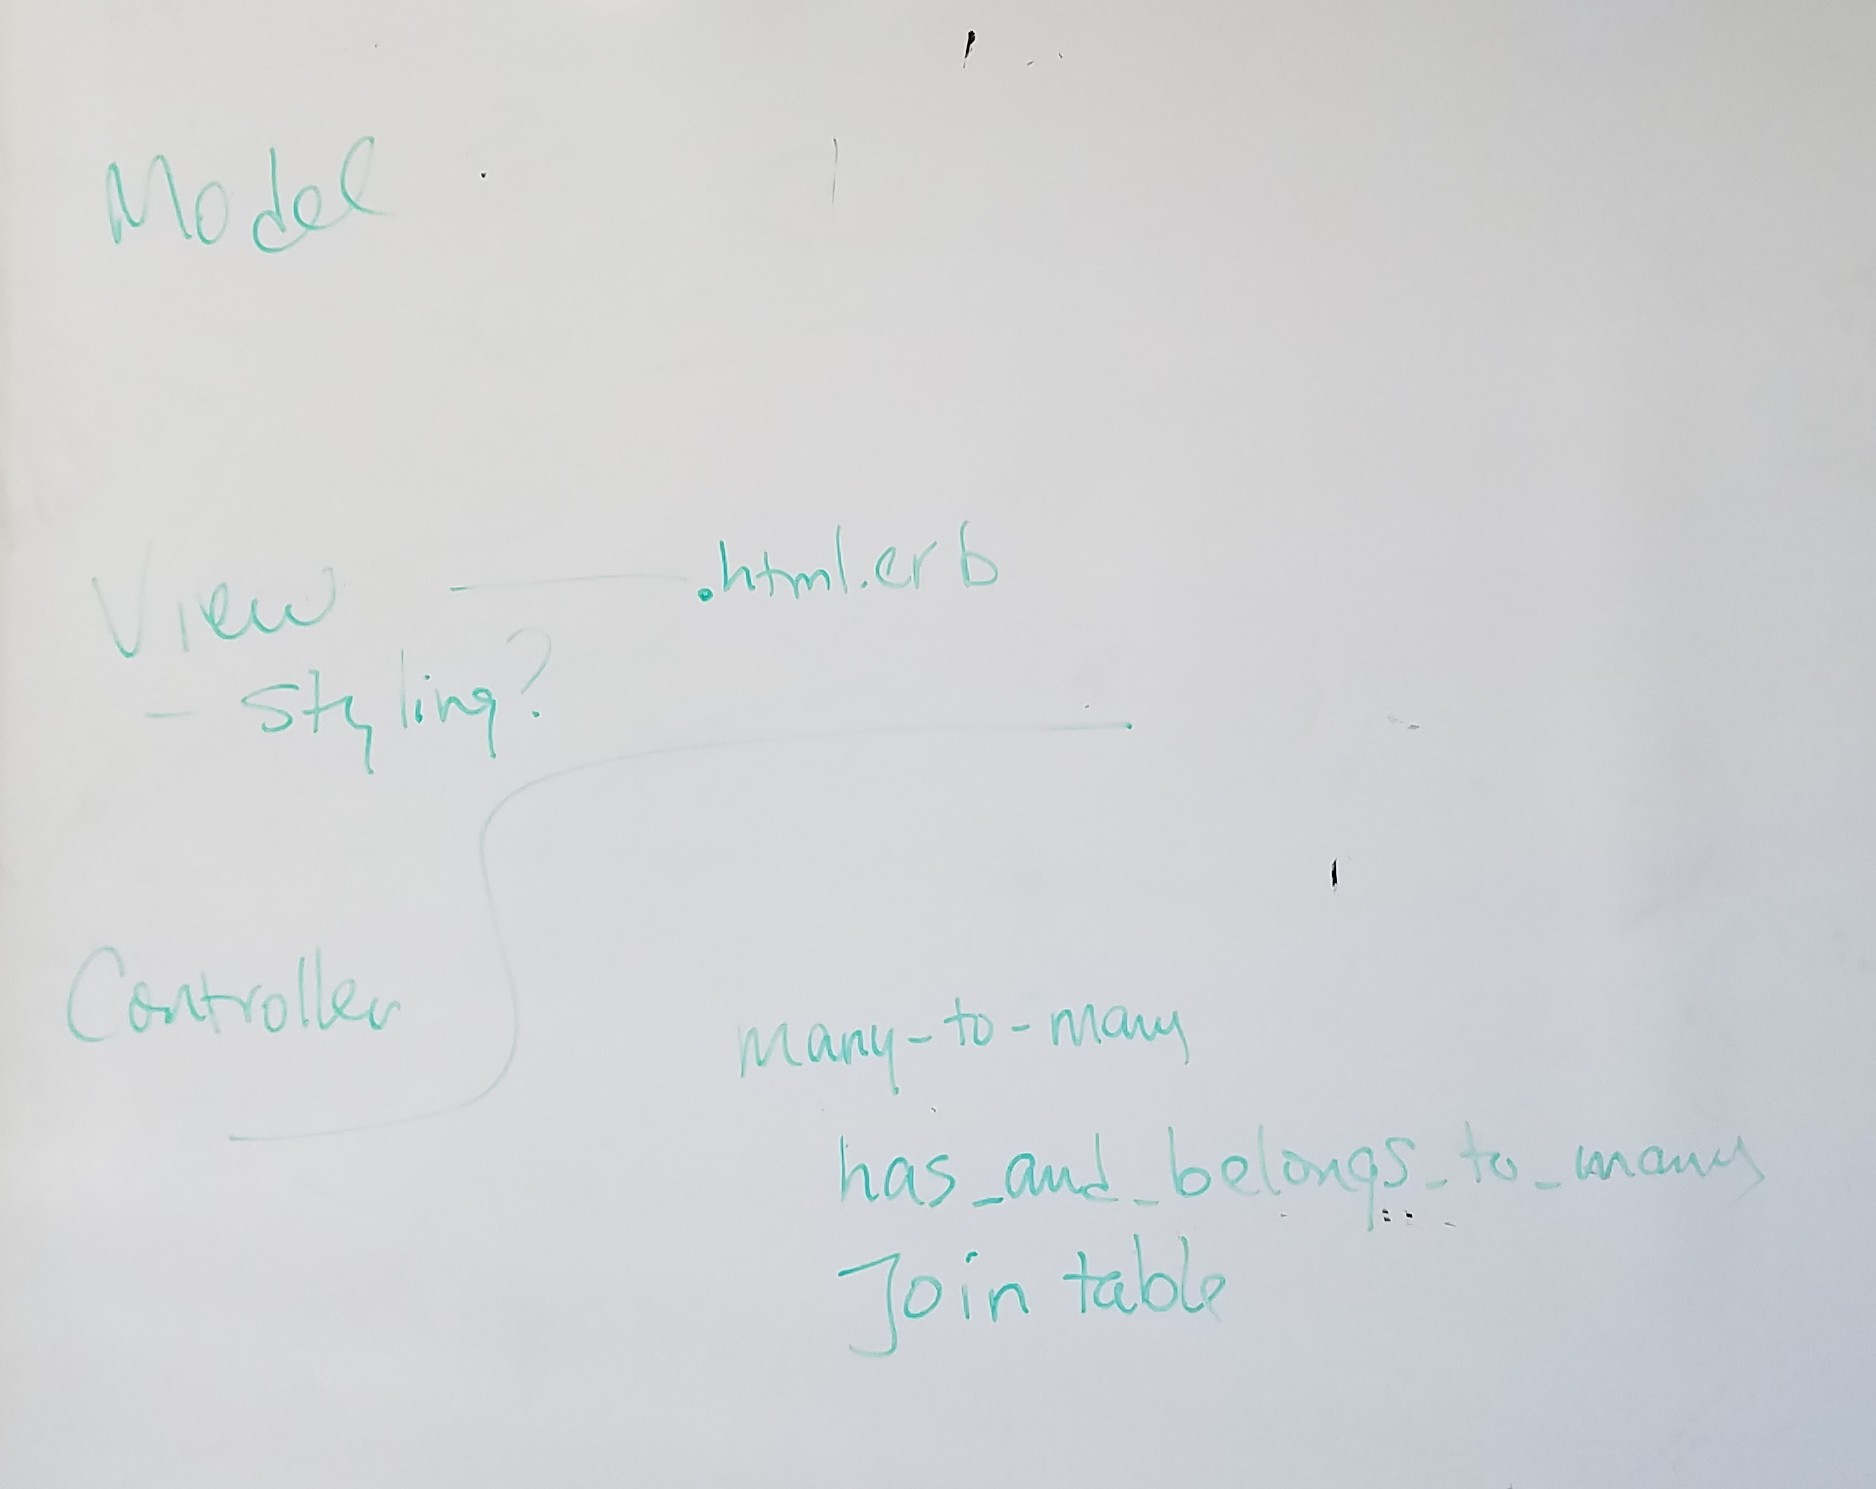 Model
View .html.erb
- Styling?
Controller
many-to-many
has_and_belongs_to_many
Join table